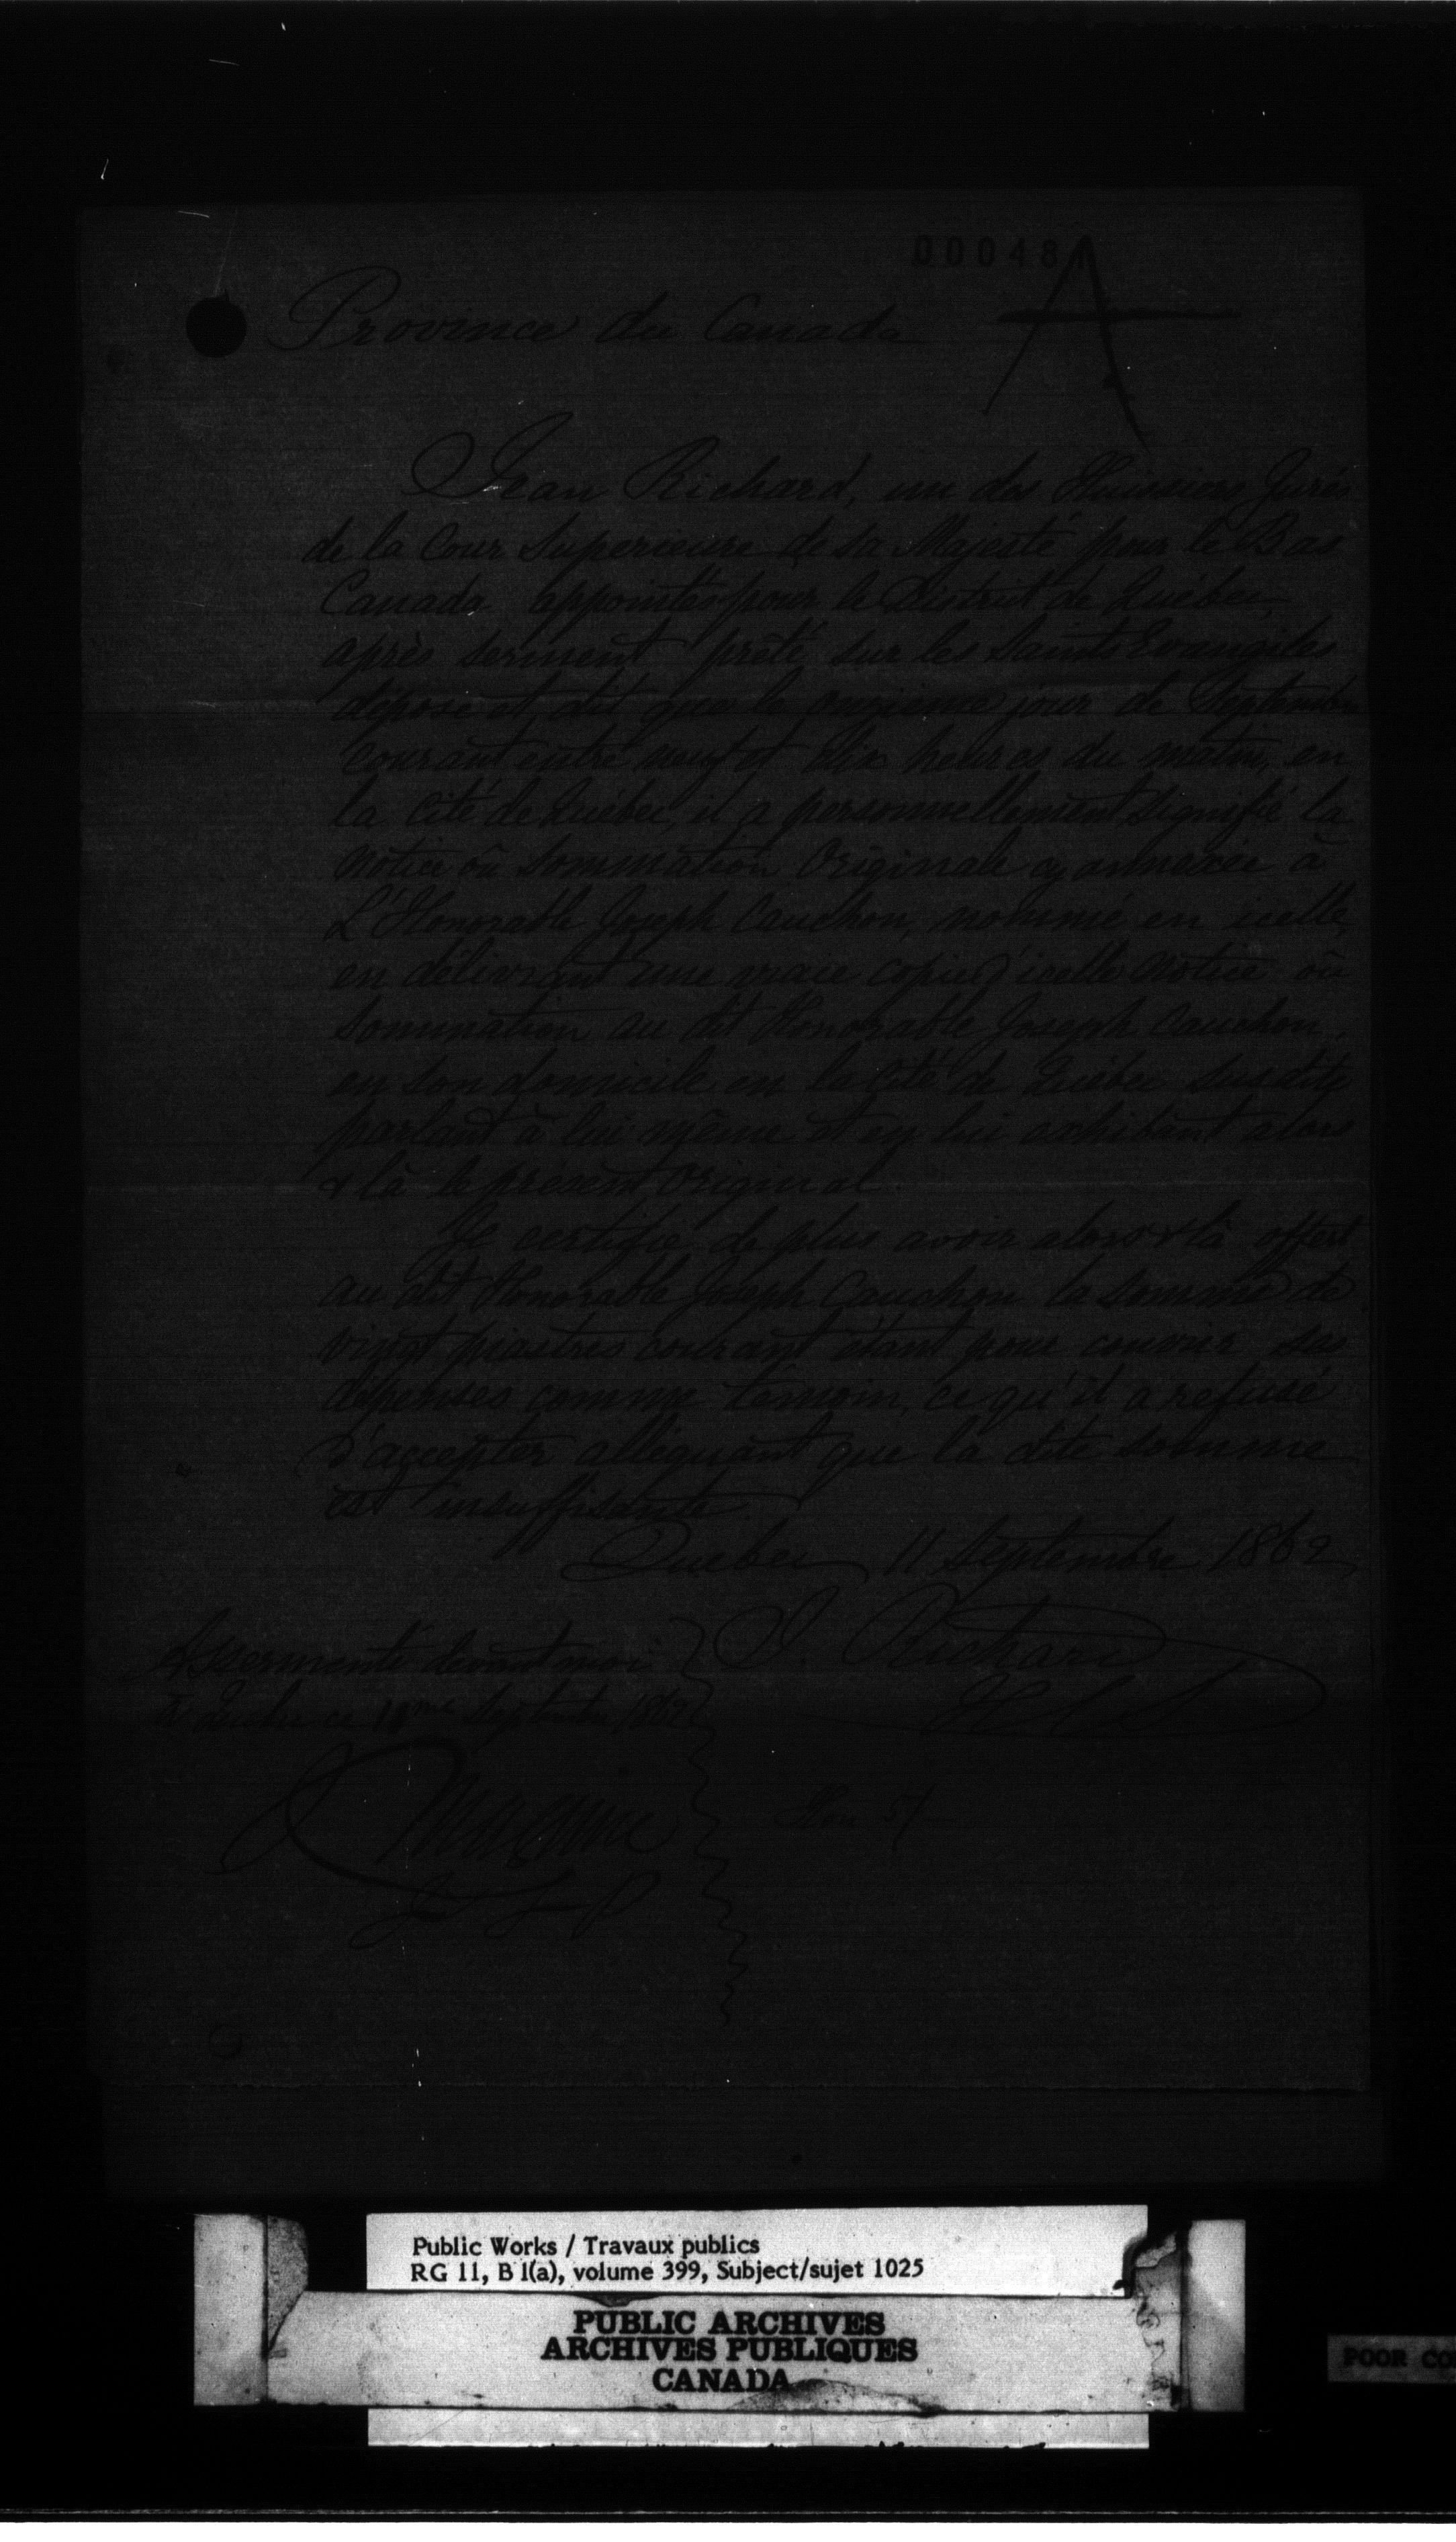 000481
A
Province du Canada
Jean Richard, un des Huissiers Jurés
de la Cour Superieure de Sa Majesté pour le Bas
Canada appointés pour le District de Québec,
après serment prêté sur les Saints Evangiles
dépose et dit que le onzième jour de Septembre
courant entre neuf et dix heures du matin, en
la Cité de Québec, il a personnellement signifié la
notice où sommation Originale cy annexée à
L'Honorable Joseph Cauchon, nommé en icelle,
en délivrant une vraie copie d'icelle notice où
sommation au dit Honorable Joseph Cauchon,
en son domicile en la Cité de Québec susdite
parlant à lui même et en lui exhibant alors
& là le présent Original.
Je certifie de plus avoir alors & là offert
au dit Honorable Joseph Cauchon la somme de
vingt piastres courant étant pour couvrir ses
dépenses comme témoin, ce qu'il a refusé
d'accepter alléguant que la dite somme
est insuffisante.
Québec 11 Septembre 1862
Assermenté devant moi
à Québec ce 11me Septembre 1862
J. Richard
H.C.S.
5/-
J P
Public Works / Travaux publics
RG 11, B 1(a), volume 399, Subject/sujet 1025
PUBLIC ARCHIVES
ARCHIVES PUBLIQUES
CANADA
POOR CO